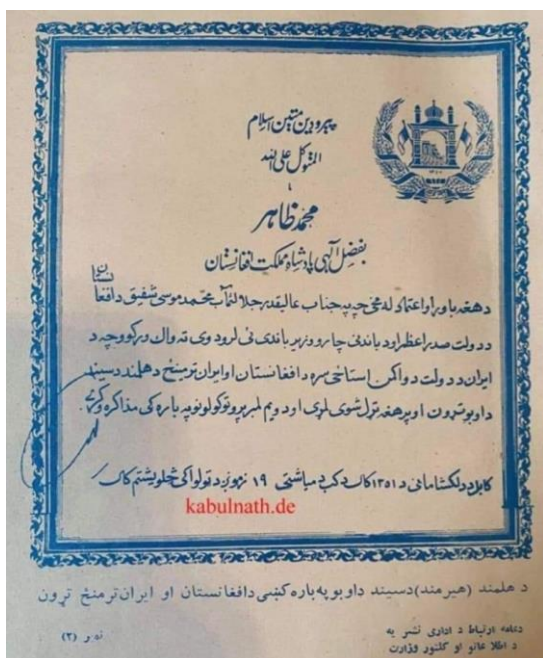 پیرو دین متین اسلام
المتوکل علی الله
محمد ظاهر
بفضل الهی پادشاه مملکت افغانستان
دهغه باور او اعتماد له مخی چه په جناب عالیقدر جلالتمآب محمد موسی شفیق دافغانستان
ددولت صدراعظم او دباندنی چارو وزیر باندی ئی لرو دوی ته واک ورکوو چه د
ایران ددولت دواکمن استاځی سره دافغانستان او ایران ترمینځ دهلمند دسیند
داوبو تړون او پرهغه تړل شوی لمړی او دویم لمبر پروتوکولونو په باره کی مذاکره وکړی.
کابل ددلکشا مانی د ۱۳۵۱ کال دکب دمیاشتی ۱۹ زمونږ دټولواکی څلوېښتم کال
kabulnath.de
د هلمند (هیرمند) دسیند داوبو په باره کښی دافغانستان او ایران ترمنځ تړون
دعامه ارتباط د اداری نشریه
د اطلاعاتو او کلتور وزارت
نمبر (۳)